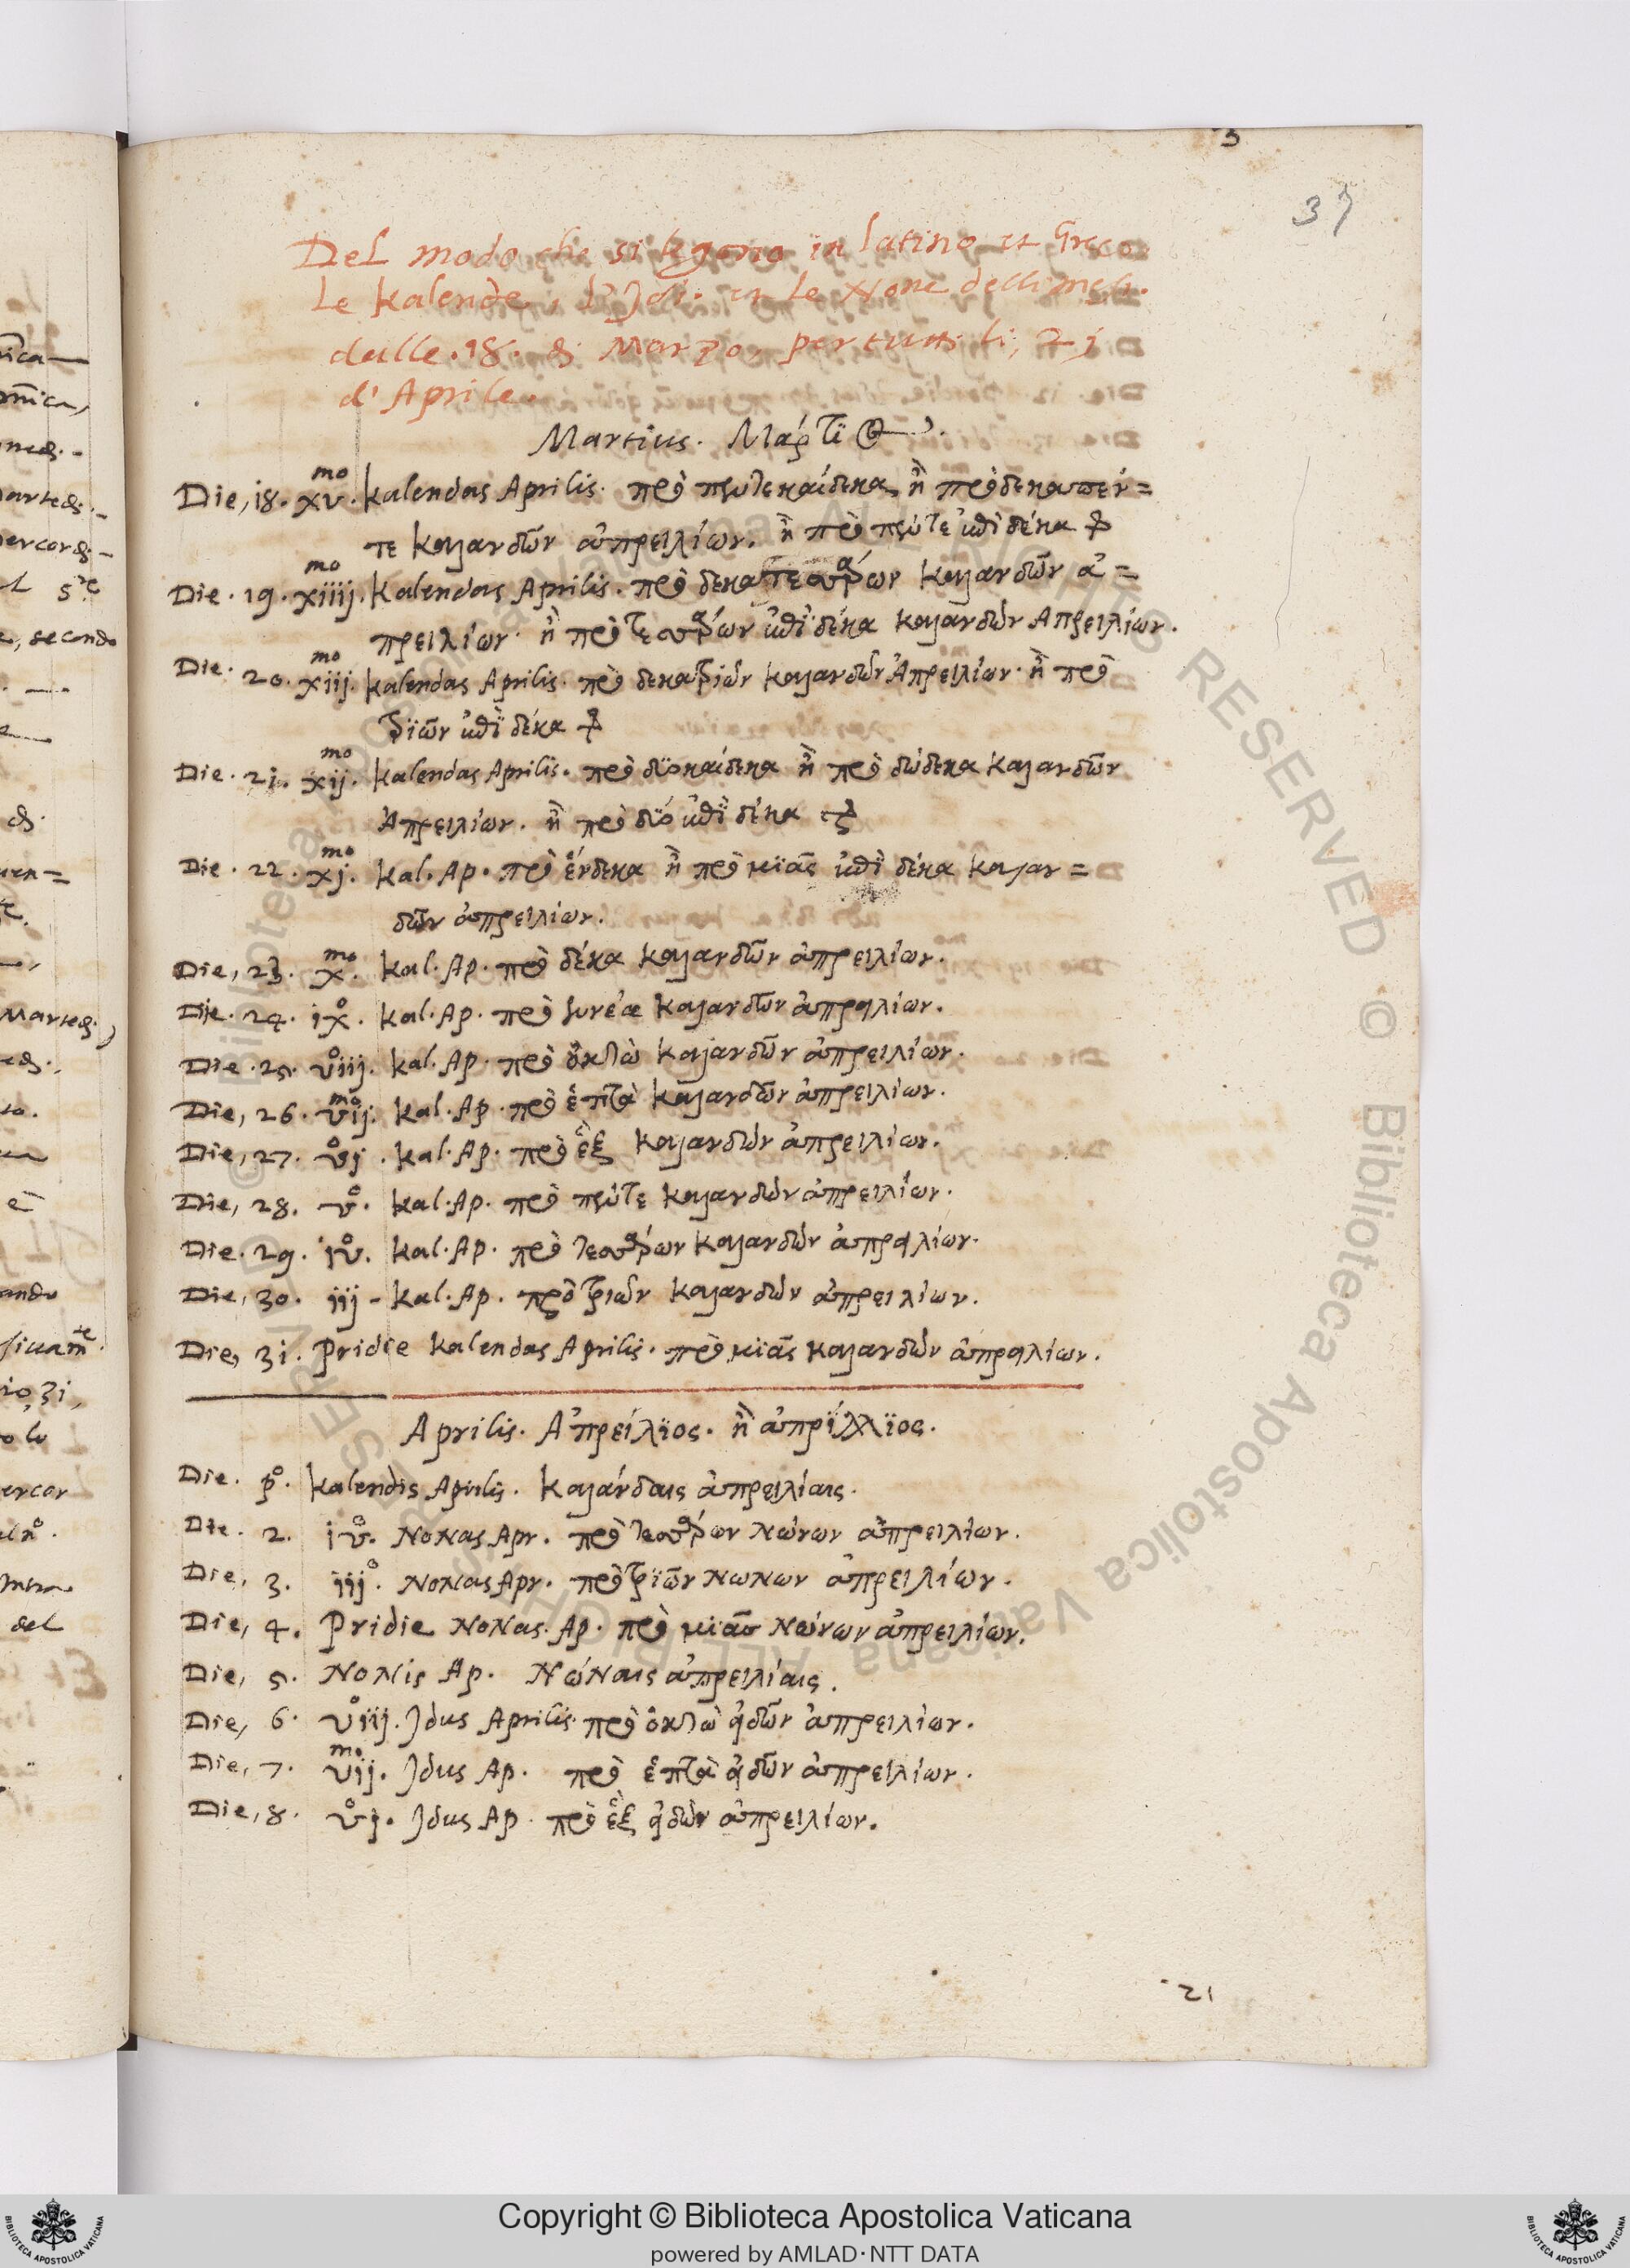 37
Del modo che si legono in latino et Greco
Le Kalende, l'Idi. et le None delli mesi.
dalle .18. di Marzo, per tutti li, 21
d'Aprile.
Martius. Μάρτιος.
Die, 18. xv.mo Kalendas Aprilis. πρὸ πεντεκαίδεκα ἢ πρὸ δεκαπέν=
τε καλανδῶν ἀπρειλίων. ἢ πρὸ πέντε καὶ δέκα
Die. 19. xiiij.mo Kalendas Aprilis. πρὸ δεκατεσσάρων καλανδῶν ἀ=
πρειλίων. ἢ πρὸ τεσσάρων καὶ δέκα καλανδῶν Απρειλίων.
Die. 20. xiij.mo Kalendas Aprilis. πρὸ δεκατριῶν καλανδῶν Ἀπρειλίων. ἢ πρὸ
τριῶν καὶ δέκα
Die. 21. xij.mo Kalendas Aprilis. πρὸ δϋοκαίδεκα ἢ πρὸ δώδεκα καλανδῶν
Ἀπρειλίων. ἢ πρὸ δϋό καὶ δέκα
Die. 22. xj.mo Kal. Ap. πρὸ ἕνδεκα ἢ πρὸ μϊᾶς καὶ δέκα καλαν=
δῶν ἀπρειλίων.
Die, 23. x.mo Kal. Ap. πρὸ δέκα καλανδῶν ἀπρειλίων.
Die. 24. ix.o Kal. Ap. πρὸ ἐννέα καλανδῶν ἀπρειλίων.
Die. 25. viij.o Kal. Ap. πρὸ ὀκτὼ καλανδῶν ἀπρειλίων.
Die, 26. vij.mo Kal. Ap. πρὸ ἑπτὰ καλανδῶν ἀπρειλίων.
Die, 27. vj.o Kal. Ap. πρὸ ἓξ καλανδῶν ἀπρειλίων.
Die, 28. v.o Kal. Ap. πρὸ πέντε καλανδῶν ἀπρειλίων.
Die. 29. iv.o Kal. Ap. πρὸ τεσσάρων καλανδῶν ἀπρειλίων.
Die, 30. iij - Kal. Ap. πρὸ τριῶν καλανδῶν ἀπρειλίων.
Die, 31. Pridie Kalendas Aprilis. πρὸ μϊᾶς καλανδῶν ἀπρειλίων.
Aprilis. Ἀπρείλϊος. ἢ ἀπρίλλϊος.
Die. p.o Kalendis Aprilis. Καλάνδαις ἀπρειλίαις.
Die. 2. iv.o Nonas Apr. πρὸ τεσσάρων Νώνων ἀπρειλίων.
Die, 3. iij.o Nonas Apr. πρὸ τρϊῶν Νωνων ἀπρειλίων.
Die, 4. Pridie Nonas. Ap. πρὸ μϊᾶσ Νώνων ἀπρειλίων.
Die, 5. Nonis Ap. Νώναις ἀπρειλίαις.
Die, 6. viij.o Idus Aprilis. πρὸ ὀκτὼ εἰδῶν ἀπρειλίων.
Die, 7. vij.mo Idus Ap. πρὸ ἑπτὰ εἰδῶν ἀπρειλίων.
Die, 8. vj.o Idus Ap. πρὸ ἓξ εἰδῶν ἀπρειλίων.
21
Copyright © Biblioteca Apostolica Vaticana
powered by AMLAD·NTT DATA